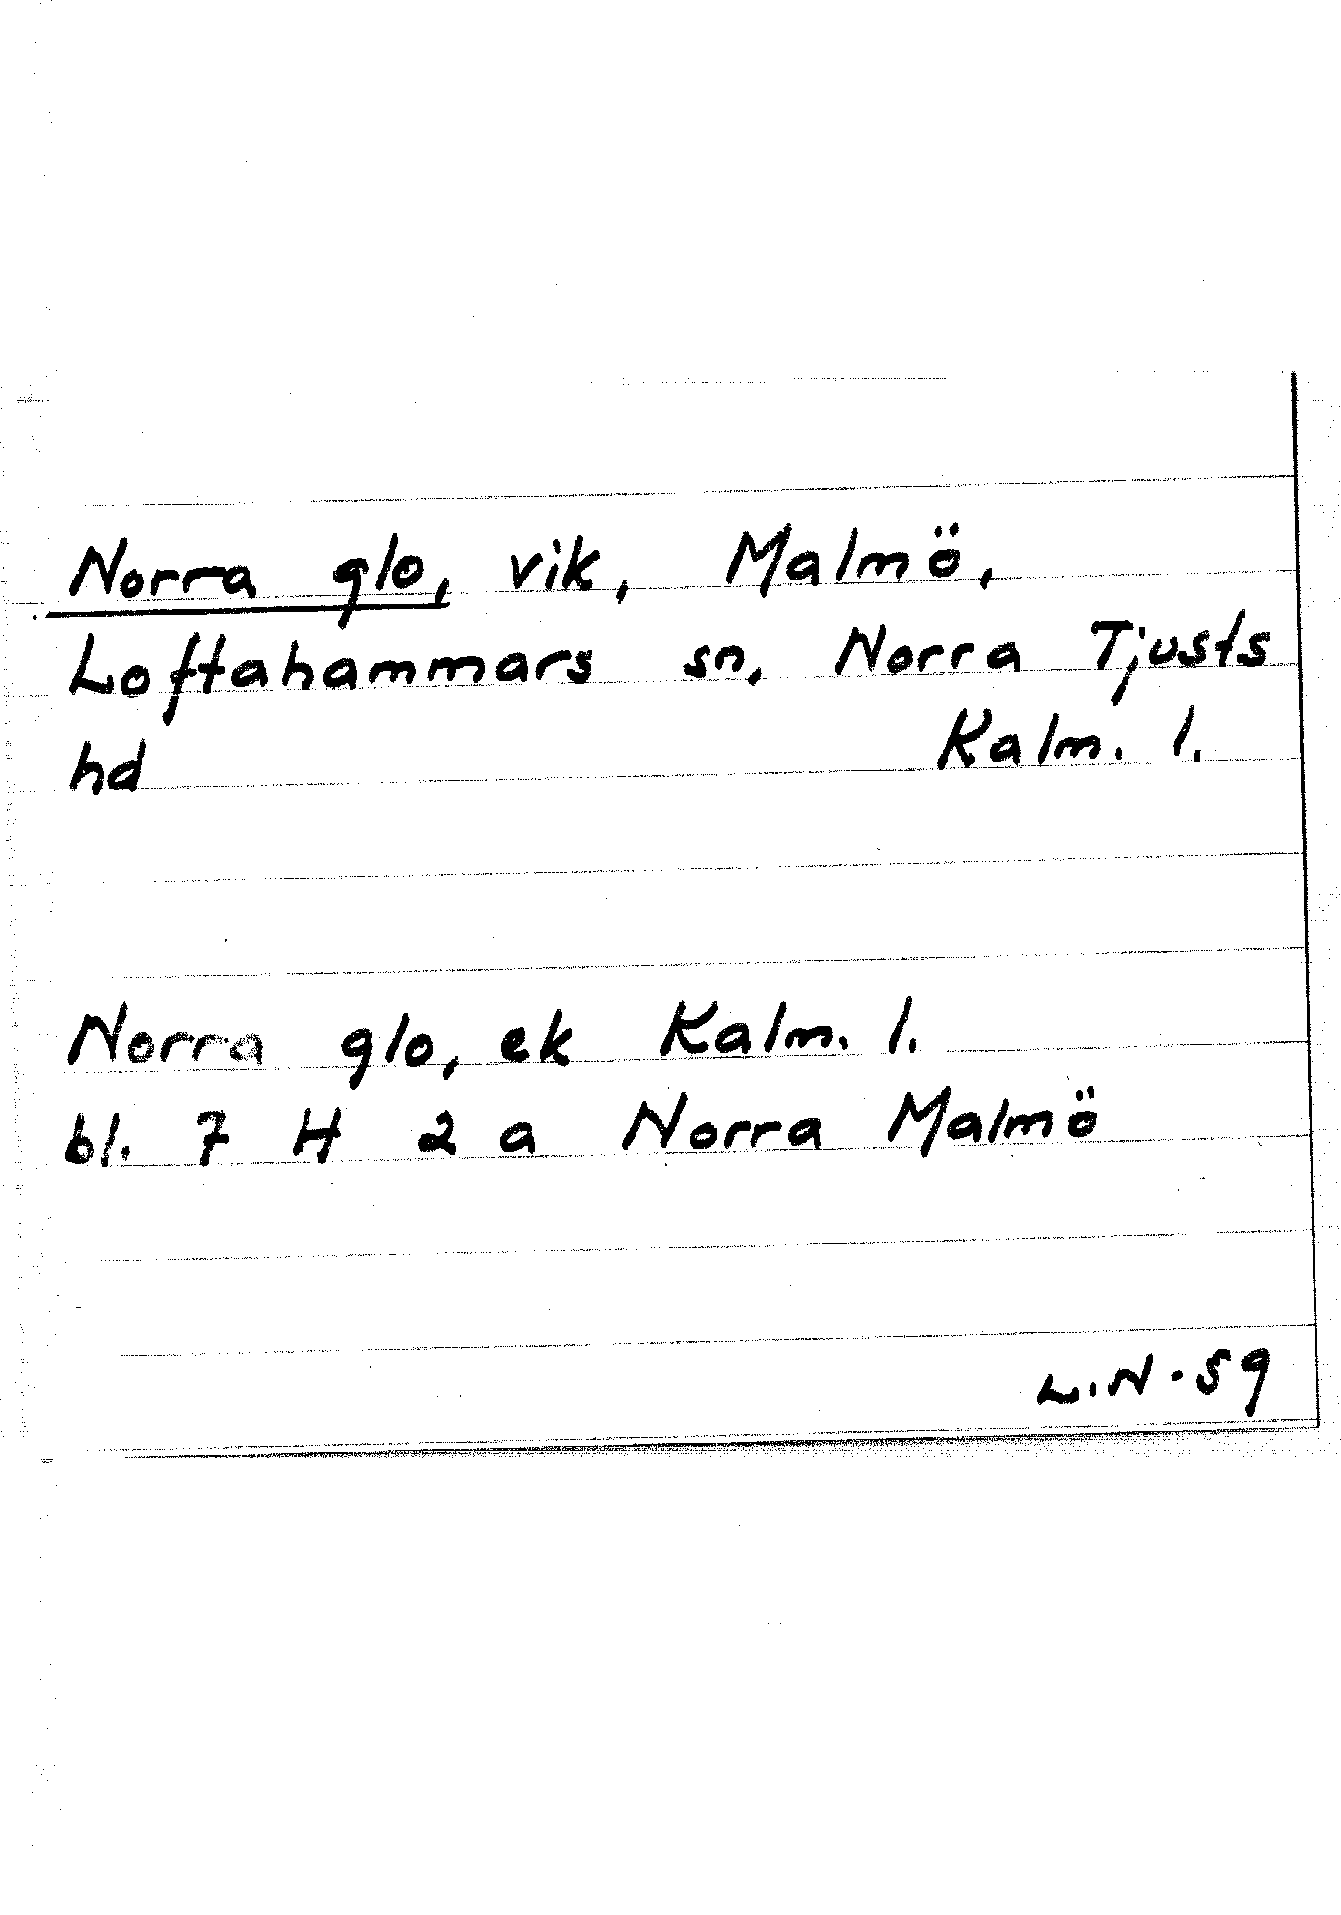 Norra glo, vik, Malmö,
Loftahammars sn, Norra Tjusts
hd Kalm. l.
Norra glo, ek Kalm. l.
bl. 7 H 2 a Norra Malmö
L.N. 59